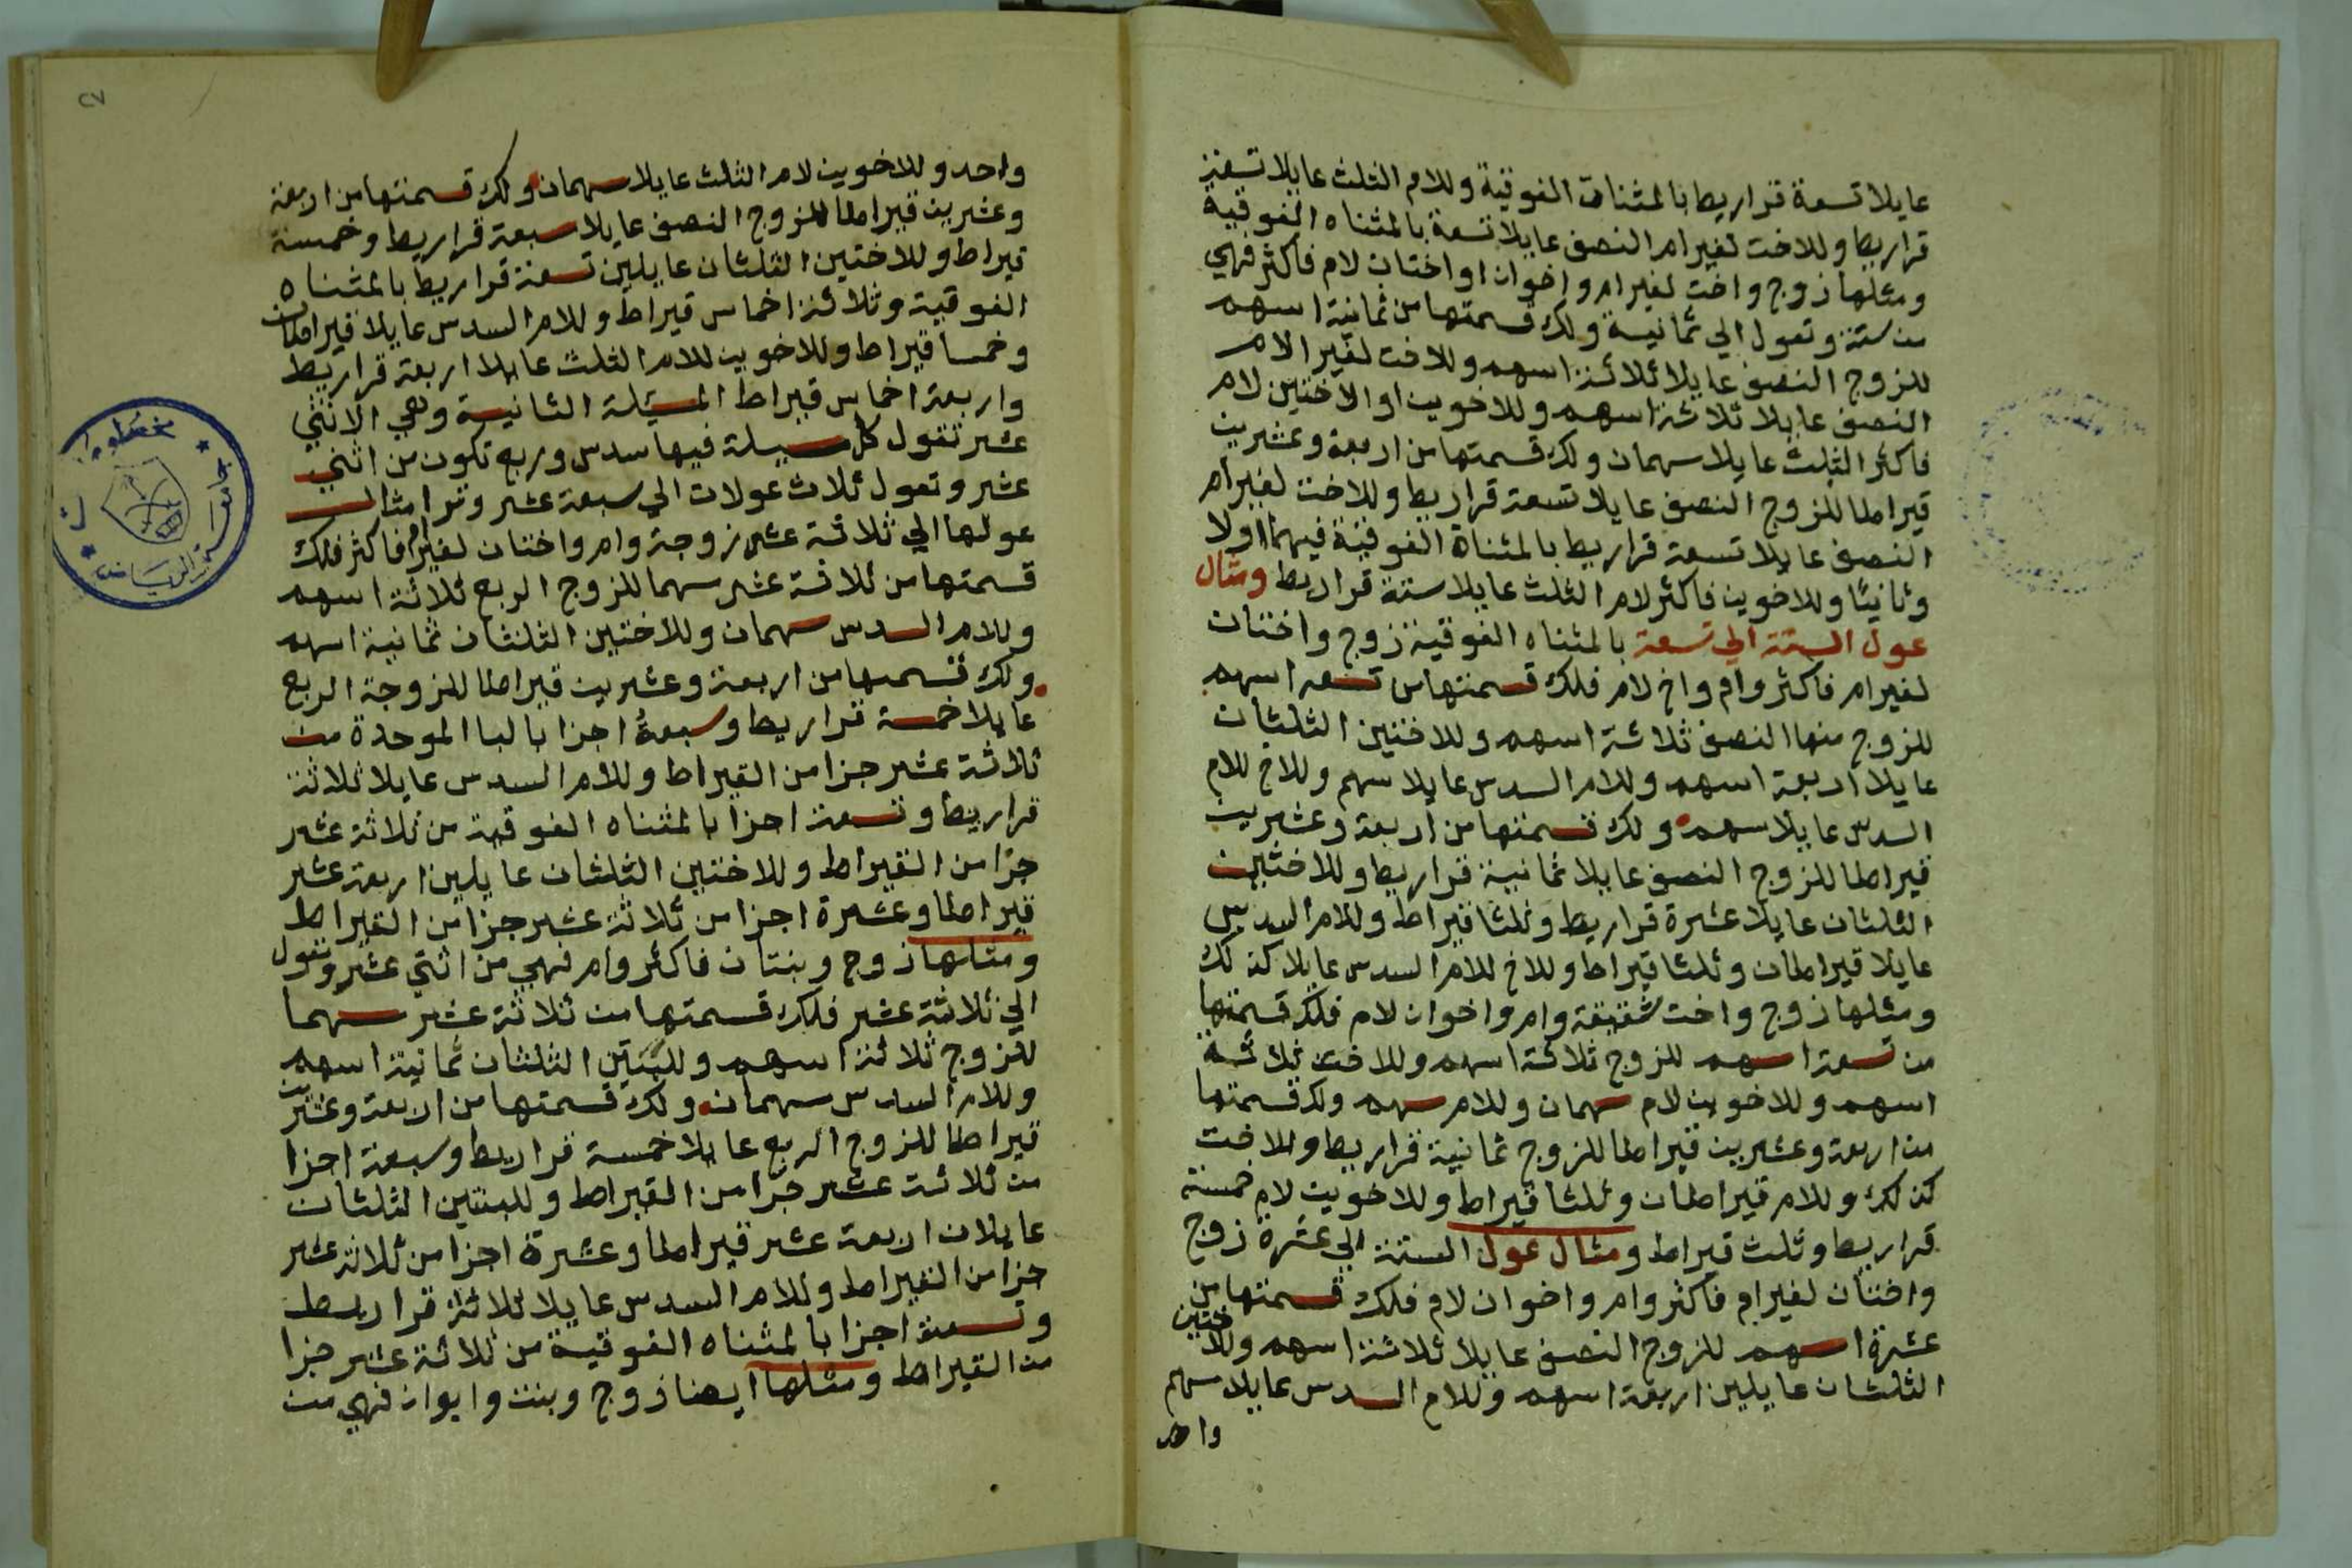 عايلا تسعة قراريط بالمثنات الفوقية وللام الثلث عايلا تسعة
قراريط وللاخت لغير ام النصف عايلا تسعة بالمثناه الفوقية
ومثلها زوج واخت لغير ام واخوان او اختان لام فاكثر فهي
من ستة وتعول الي ثمانية ولك قسمتها من ثمانية اسهم
للزوج النصف عايلا ثلاثة اسهم وللاخت لغير الام
النصف عايلا ثلاثة اسهم وللاخوين او الاختين لام
فاكثر الثلث عايلا سهمان ولك قسمتها من اربعة وعشرين
قيراطا للزوج النصف عايلا تسعة قراريط وللاخت لغير ام
النصف عايلا تسعة قراريط بالمثناة الفوقية فيهما اولا
وثانيا وللاخوين فاكثر لام الثلث عايلا ستة قراريط ومثال
عول الستة الي تسعة بالمثناه الفوقية زوج واختان
لغير ام فاكثر وام واخ لام فلك قسمتها من تسعه اسهم
للزوج منها النصف ثلاثة اسهم وللاختين الثلثان
عايلا اربعة اسهم وللام السدس عايلا سهم وللاخ للام
السدس عايلا سهم ولك قسمتها من اربعة وعشرين
قيراطا للزوج النصف عايلا ثمانية قراريط وللاختين
الثلثان عايلا عشرة قراريط وثلثا قيراط وللام السدس
عايلا قيراطان وثلثا قيراط وللاخ للام السدس عايلا كذلك
ومثلها زوج واخت شقيقة وام واخوان لام فلك قسمتها
من تسعة اسهم للزوج ثلاثة اسهم وللاخت ثلاثة
اسهم وللاخوين لام سهمان وللام سهم ولك قسمتها
من اربعة وعشرين قيراطا للزوج ثمانية قراريط وللاخت
كذلك وللام قيراطان وثلثا قيراط وللاخوين لام خمسة
قراريط وثلث قيراط ومثال عول الستة الي عشرة زوج
واختان لغير ام فاكثر وام واخوان لام فلك قسمتها من
عشرة اسهم للزوج النصف عايلا ثلاثة اسهم وللاختين
الثلثان عايلين اربعة اسهم وللام السدس عايلا سهم
واحد
٢٧
واحد وللاخوين لام الثلث عايلا سهمان ولك قسمتها من اربعة
وعشرين قيراطا للزوج النصف عايلا سبعة قراريط وخمسة
قيراط وللاختين الثلثان عايلين تسعة قراريط بالمثناه
الفوقية وثلاثة اخماس قيراط وللام السدس عايلا قيراطان
وخمسا قيراط وللاخوين للام الثلث عايلا اربعة قراريط
واربعة اخماس قيراط المسيلة الثانية وهي الاثني
عشر تقول كل مسيلة فيها سدس وربع تكون من اثني
عشر وتعول ثلاث عولات الي سبعة عشر وترا مثال
عولها الي ثلاثة عشر زوجة وام واختان لغير ام فاكثر فلك
قسمتها من ثلاثة عشر سهما للزوج الربع ثلاثة اسهم
وللام السدس سهمان وللاختين الثلثان ثمانية اسهم
ولك قسمها من اربعة وعشرين قيراطا للزوجة الربع
عايلا خمسة قراريط وسبعة اجزا بالبا الموحدة من
ثلاثة عشر جزا من القيراط وللام السدس عايلا ثلاثة
قراريط وتسعة اجزا بالمثناه الفوقية من ثلاثة عشر
جزا من القيراط وللاختين الثلثان عايلين اربعة عشر
قيراطا وعشرة اجزا من ثلاثة عشر جزا من القيراط
ومثلها زوج وبنتان فاكثر وام فهي من اثني عشر وتعول
الي ثلاثة عشر فلك قسمتها من ثلاثة عشر سهما
للزوج ثلاثة اسهم وللبنتين الثلثان ثمانية اسهم
وللام السدس سهمان ولك قسمتها من اربعة وعشرين
قيراطا للزوج الربع عايلا خمسة قراريط وسبعة اجزا
من ثلاثة عشر جزا من القيراط وللبنتين الثلثان
عايلان اربعة عشر قيراطا وعشرة اجزا من ثلاثة عشر
جزا من القيراط وللام السدس عايلا ثلاثة قراريط
وتسعة اجزا بالمثناه الفوقية من ثلاثة عشر جزا
من القيراط ومثلها ايضا زوج وبنت وابوان فهي من
جامعة الرياض
مخطوطات